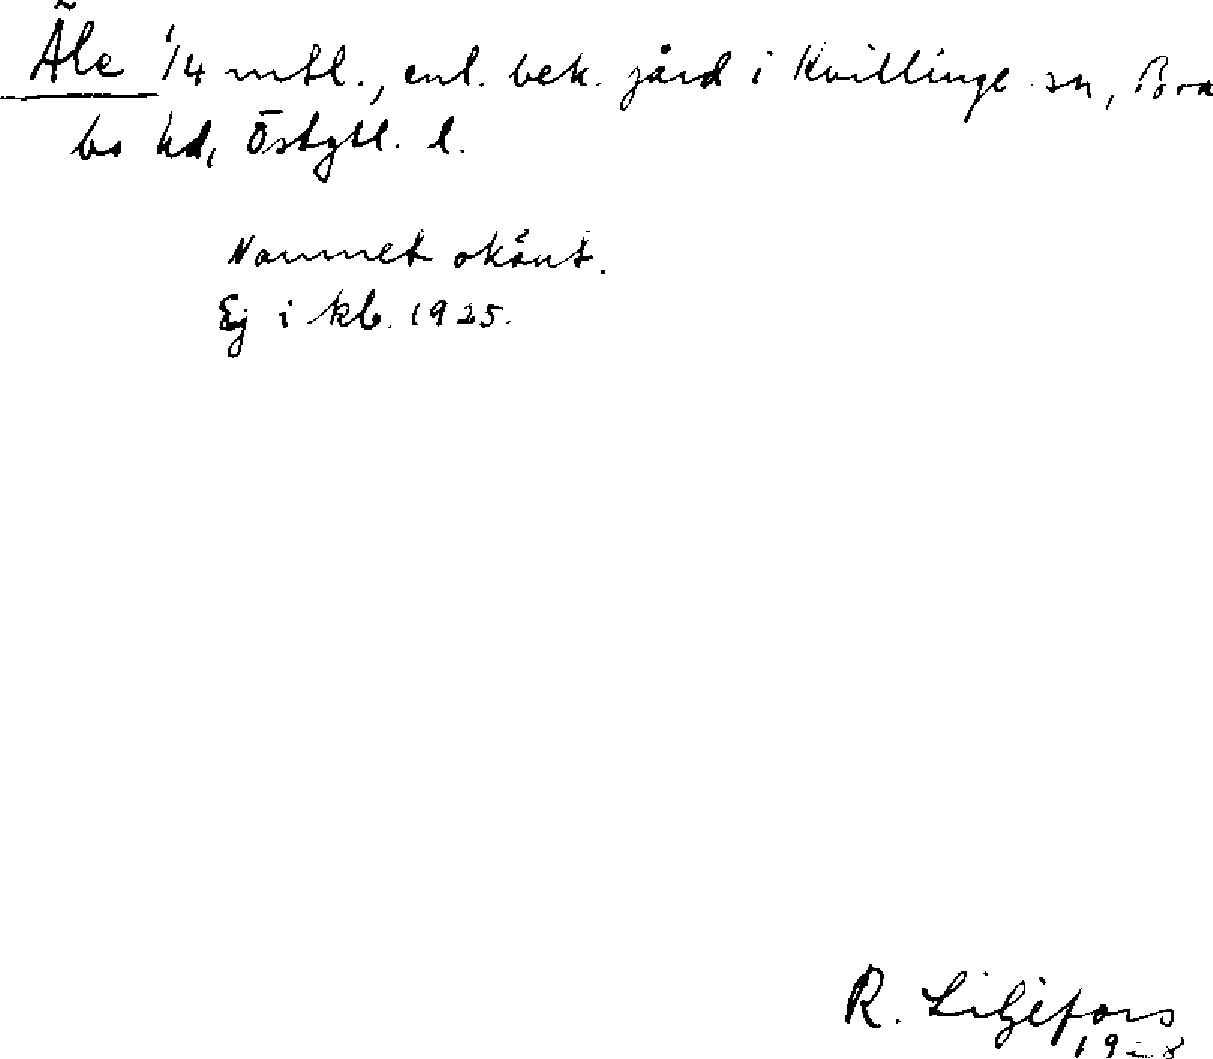 Åle 1/4 mtl., enl. bek. gård i Kvillinge sn, Bra
bo hd, Östgtl. l.
Namnet okänt.
Ej i kb. 1925.
R. Liljefors